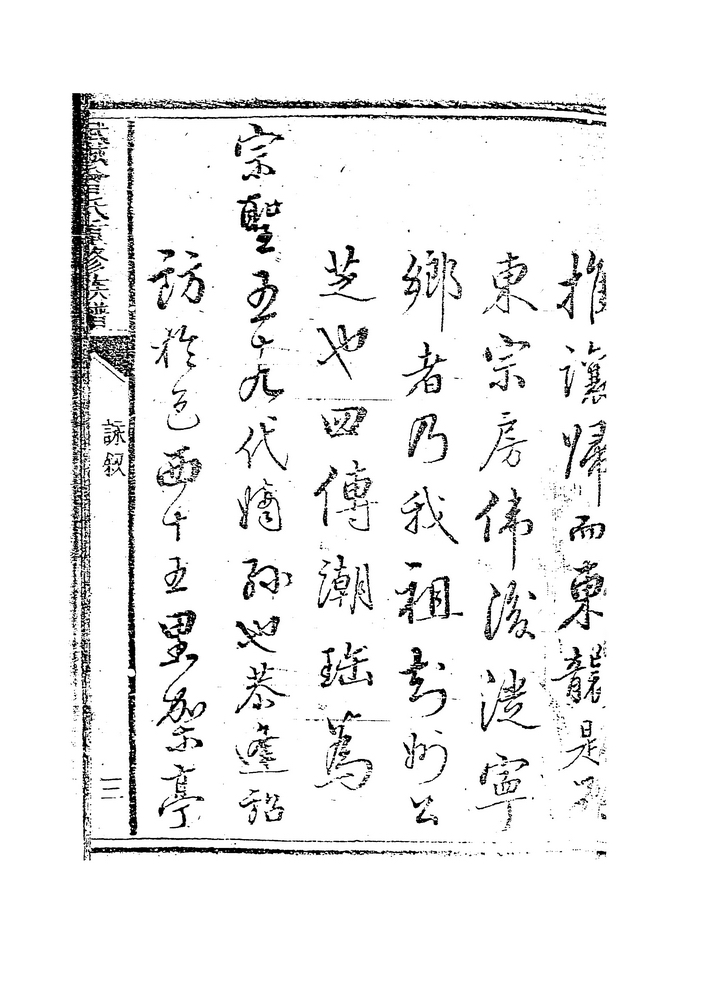 推讓歸而東龍是以
東宗房偉後徙寧
鄉者乃我祖彭州公
芝也四傳潮瑤為
宗聖五十九代嫡孫也恭逢詔
訪於邑西十五里架亭
武城曾氏重修族譜
詠叙
三